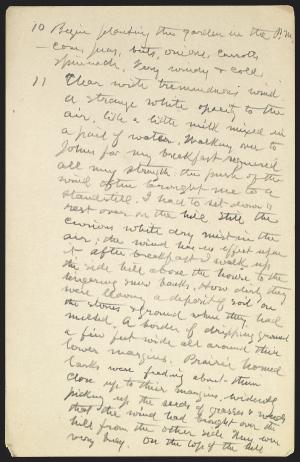 10 Begin planting the garden in the P.M.
— corn, peas, beets, onions, carrots
spinach. Very windy & cold.
11 Clear with tremendous wind.
a strange white opacity to the
air, like a little milk mixed in
a pail of water. Walking over to
Johns for my breakfast required
all my strength: the push of the
wind often brought me to a
standstill. I had to sit down &
rest over on the hill. Still the
curious white dry mist in the
air; the wind has no effect upon
it. After breakfast I walk up
the side hill above the house to the
lingering snow banks. How dirty they
were leaving a deposit of soil on
the stones & ground where they had
melted. A border of dripping ground
a few feet wide all around their
lower margins. Prairie horned
larks were feeding about them
close up to their margins, evidently
picking up the seeds of grasses & weeds
that the wind had brought over the
hill from the other side. They were
very busy. On the top of the hill